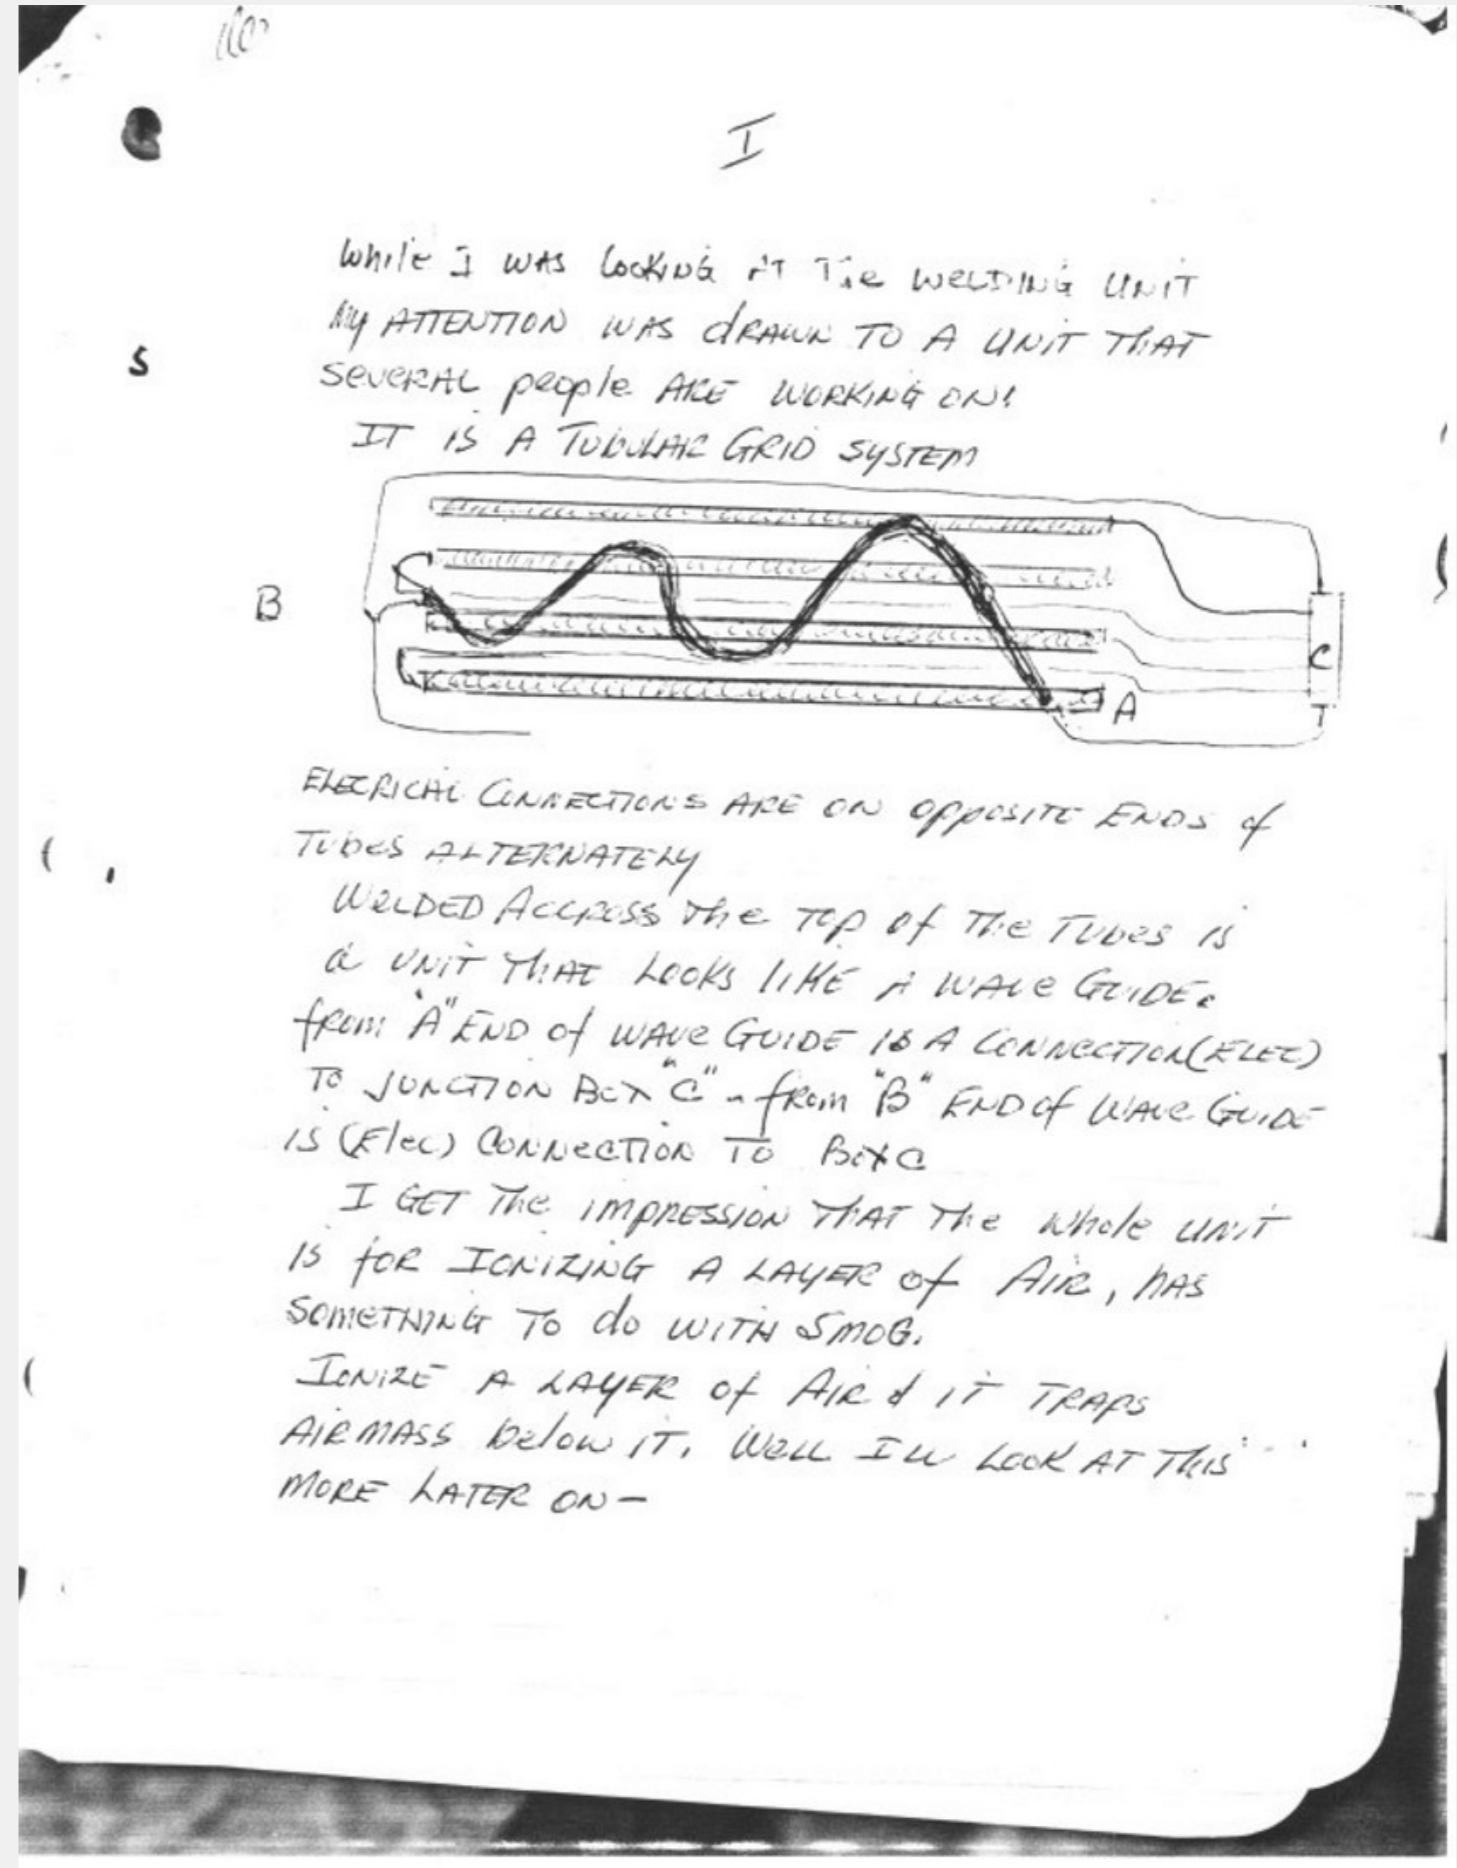 I
While I WAS LOOKING AT The WELDING UNIT
My ATTENTION WAS dRAWN TO A UNIT THAT
SEVERAL people ARE WORKING ON!
S
IT IS A TUBULAR GRID SYSTEM
B
C
A
ELECRICAL CONNECTIONS ARE ON OPPOSITE ENDS of
TUBES ALTERNATELY
WELDED ACCROSS The TOP of The TUBES is
a UNIT THAT LOOKS LIKE A WAVE GUIDE.
from "A" END of WAVE GUIDE IS A CONNECTION (ELEC)
TO JUNCTION BOX "C" - from "B" END of WAVE GUIDE
is (Elec) CONNECTION TO BOX C
I GET The IMPRESSION THAT The Whole UNIT
IS foR IONIZING A LAYER of AIR, hAS
SOMETHING TO do WITH SMOG.
IONIZE A LAYER of AIR & IT TRAPS
AIRMASS below IT. WELL ILL LOOK AT This
MORE LATER ON -